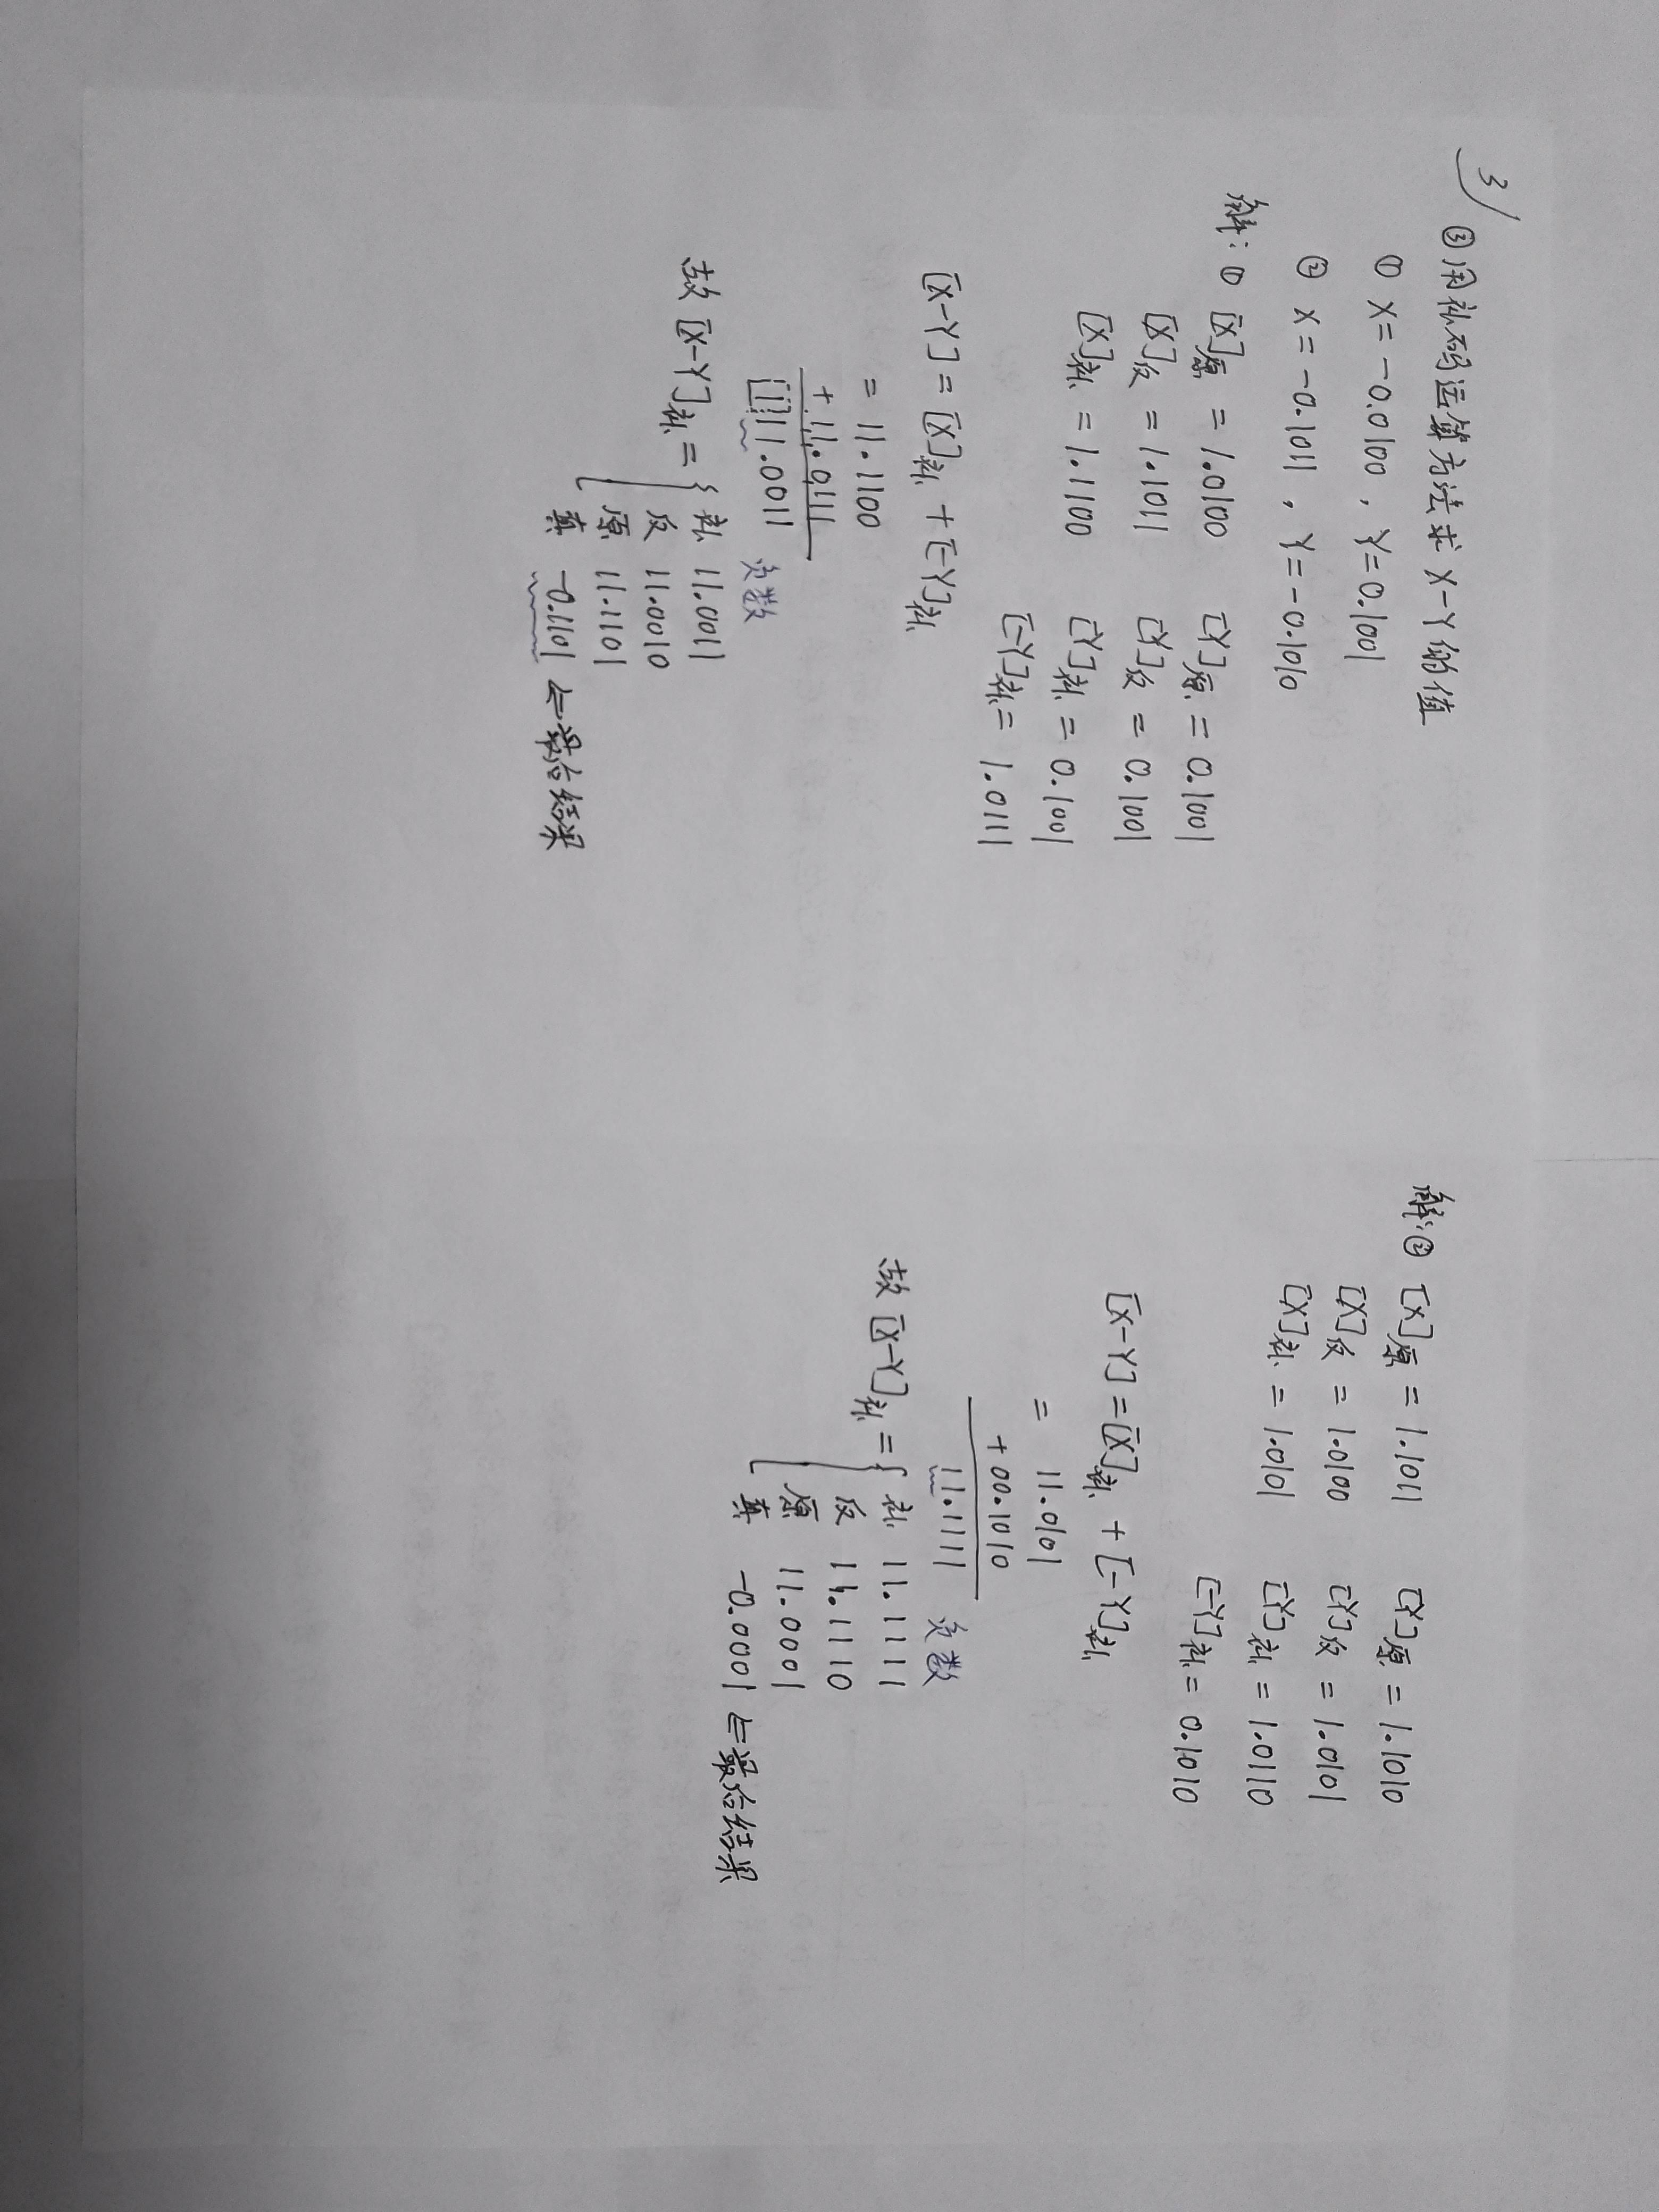 3)
③用补码运算方法求 X-Y的值
① X=-0.0100 , Y=0.1001
② X=-0.1011 , Y=-0.1010
解: ① [X]原 = 1.0100 [Y]原 = 0.1001
[X]反 = 1.1011 [Y]反 = 0.1001
[X]补 = 1.1100 [Y]补 = 0.1001
[-Y]补 = 1.0111
[X-Y] = [X]补 + [-Y]补
= 11.1100
+ 11.0111
[1]11.0011 负数
故 [X-Y]补 = { 补 11.0011
反 11.0010
原 11.1101
真 -0.1101 ⇐最后结果
解:② [X]原 = 1.1011 [Y]原 = 1.1010
[X]反 = 1.0100 [Y]反 = 1.0101
[X]补 = 1.0101 [Y]补 = 1.0110
[-Y]补 = 0.1010
[X-Y] = [X]补 + [-Y]补
= 11.0101
+ 00.1010
11.1111 负数
故 [X-Y]补 = { 补 11.1111
反 11.1110
原 11.0001
真 -0.0001 ⇐最后结果